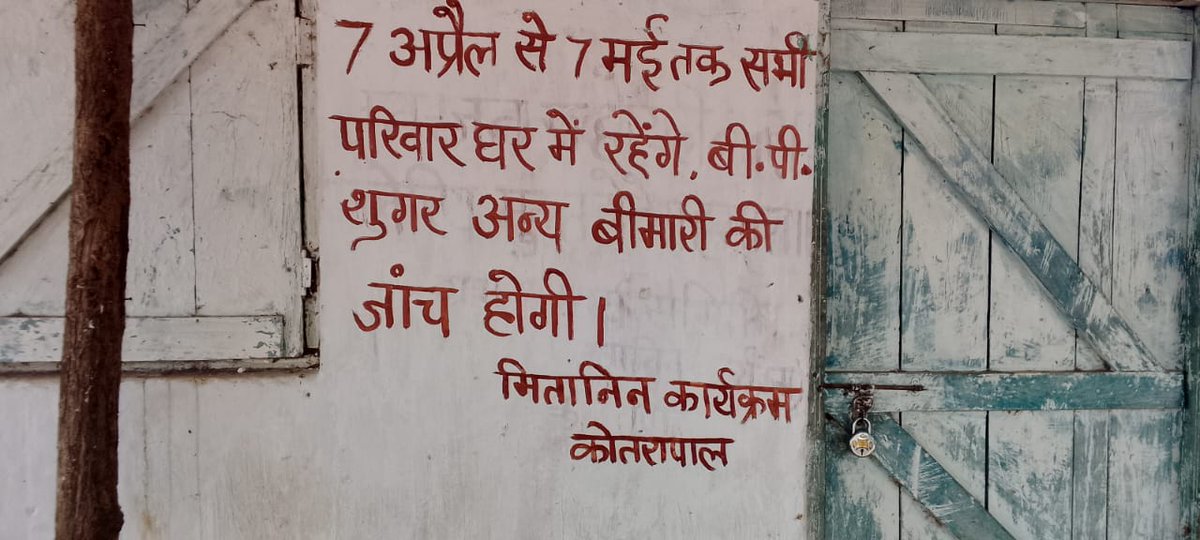 7 अप्रैल से 7 मई तक सभी
परिवार घर में रहेंगे, बी.पी.
शुगर अन्य बीमारी की
जांच होगी।
मितानिन कार्यक्रम
कोतरापाल